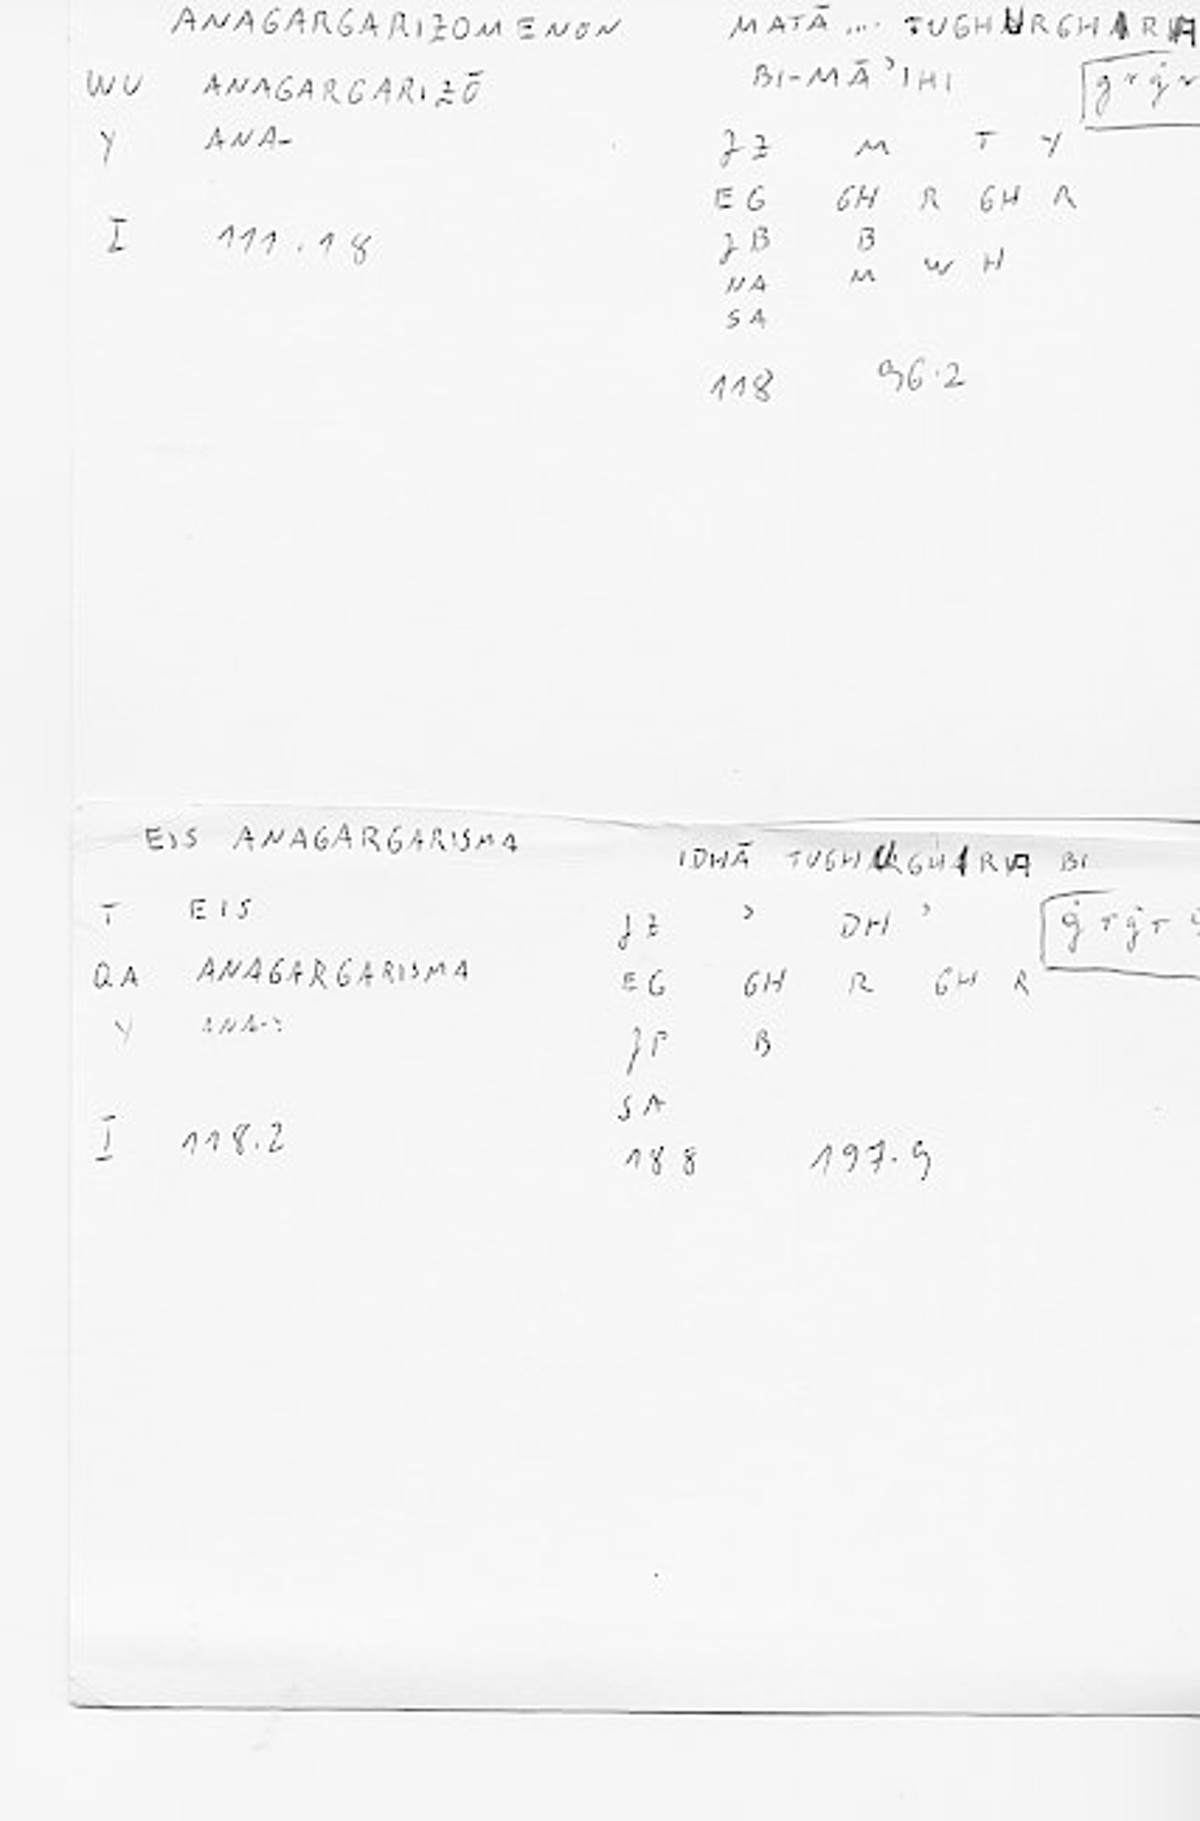 ANAGARGARIZOMENON MATĀ ... TUGHURGHIRA
WU ANAGARGARIZŌ BI-MĀʾIHI
Y ANA-
JZ M T Y
EG GH R GH R
I 111.18
JB B
NA M W H
SA
118 96.2
EIS ANAGARGARISMA IDHĀ TUGHURGHIRA BI
T EIS JZ ʾ DH ʾ
QA ANAGARGARISMA EG GH R GH R
Y ANA-
JP B
SA
I 118.2 188 197.9